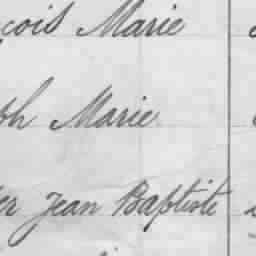 çois Marie
ph Marie
er Jean Baptiste